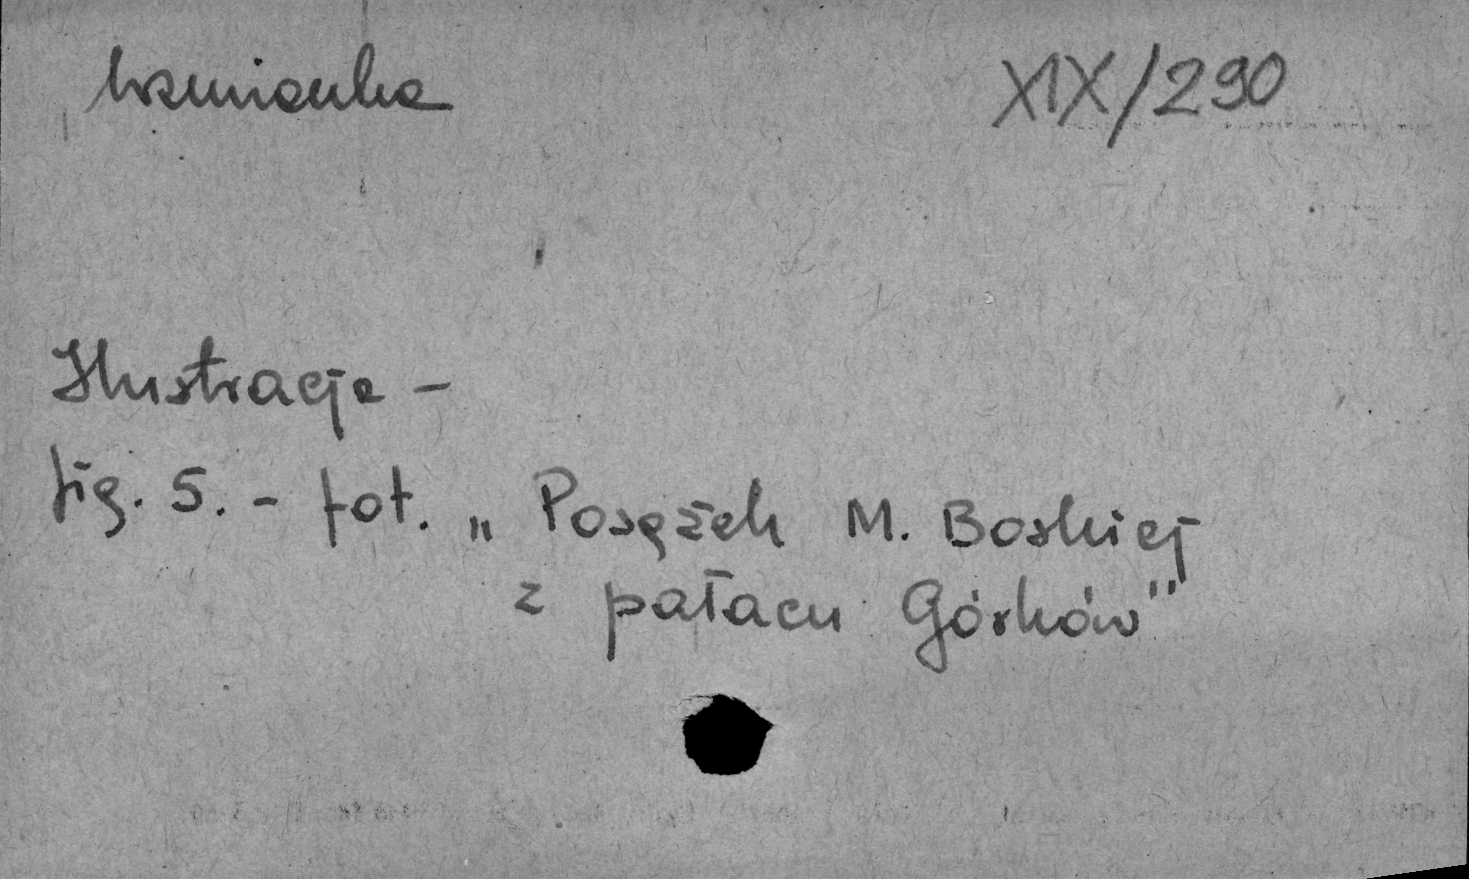 wzmianka XIX/290
Ilustracje -
fig. 5. - fot. „Posążek M. Boskiej
z pałacu Górków"